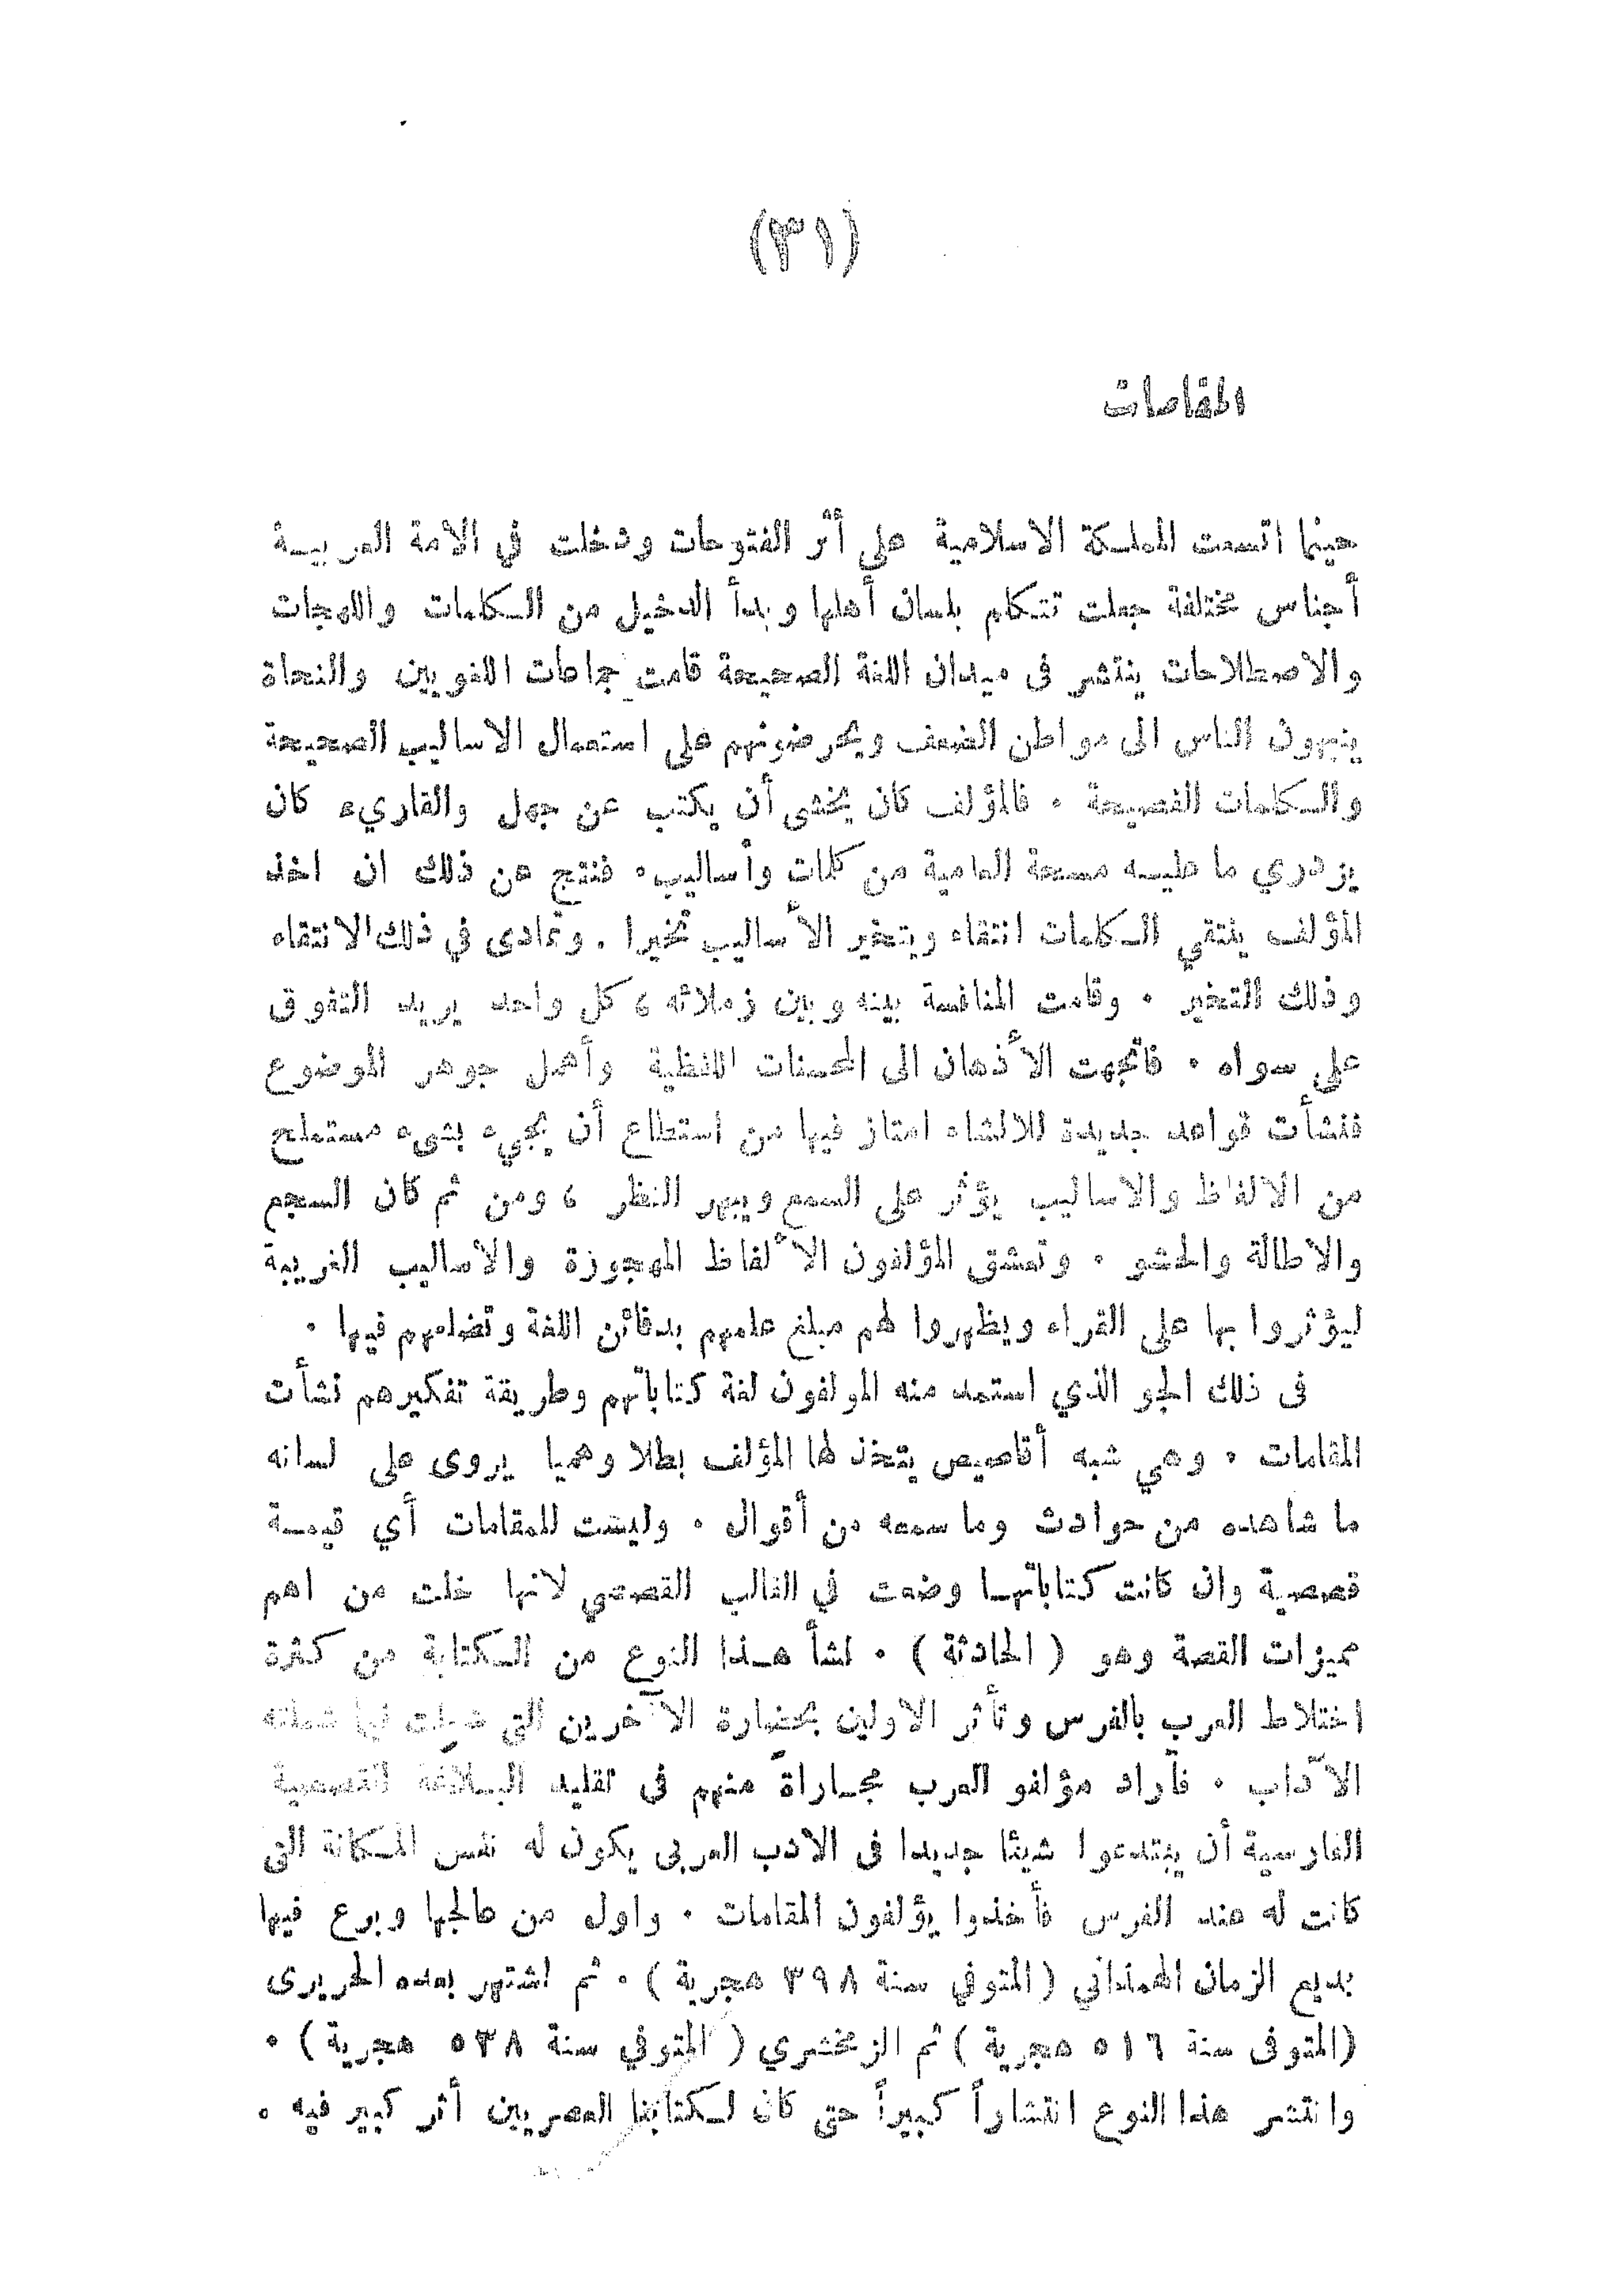 (٣١)
المقامات
حينما اتسعت المملكة الاسلامية على أثر الفتوحات ودخلت في الامة العربية
أجناس مختلفة جعلت تتكلم بلسان أهلها وبدأ الدخيل من الكلمات واللهجات
والاصطلاحات ينتشر فى ميدان اللغة الصحيحة قامت جماعات اللغويين والنحاة
ينبهون الناس الى مواطن الضعف ويحرضونهم على استعمال الاساليب الصحيحة
والكلمات الفصيحة . فالمؤلف كان يخشى أن يكتب عن جهل والقاريء كان
يزدري ما عليه مسحة العامية من كلمات وأساليب . فنتج عن ذلك ان اخذ
المؤلف ينتقي الكلمات انتقاء ويتخير الأساليب تخيرا . وتمادى في ذلك الانتقاء
وذلك التخير . وقامت المنافسة بينه وبين زملائه ، كل واحد يريد التفوق
على سواه . فاتجهت الأذهان الى المحسنات اللفظية وأهمل جوهر الموضوع
فنشأت قواعد جديدة للانشاء امتاز فيها من استطاع أن يجيء بشىء مستملح
من الالفاظ والاساليب يؤثر على السمع ويبهر النظر ، ومن ثم كان السجع
والاطالة والحشو . وتعشق المؤلفون الألفاظ المهجورة والاساليب الغريبة
ليؤثروا بها على القراء ويظهروا لهم مبلغ علمهم بدقائق اللغة وتضلعهم فيها .
فى ذلك الجو الذي استمد منه المولفون لغة كتاباتهم وطريقة تفكيرهم نشأت
المقامات . وهي شبه أقاصيص يتخذ لها المؤلف بطلا وهميا يروى على لسانه
ما شاهده من حوادث وما سمعه من أقوال . وليست للمقامات أي قيمة
قصصية وان كانت كتاباتها وضعت في القالب القصصي لانها خلت من اهم
مميزات القصة وهو ( الحادثة ) . نشأ هذا النوع من الكتابة من كثرة
اختلاط العرب بالفرس وتأثر الاولين بحضارة الآخرين التي شملت فيما شملته
الآداب . فأراد مؤلفو العرب مجاراة منهم فى تقليد البلاغة القصصية
الفارسية أن يبتدعوا شيئا جديدا فى الادب العربى يكون له نفس المكانة التى
كانت له عند الفرس فأخذوا يؤلفون المقامات . واول من عالجها وبرع فيها
بديع الزمان الهمذاني ( المتوفي سنة ٣٩٨ هجرية ) . ثم اشتهر بعده الحريرى
(المتوفى سنة ٥١٦ هجرية ) ثم الزمخشري ( المتوفي سنة ٥٣٨ هجرية ) .
وانتشر هذا النوع انتشاراً كبيراً حتى كان لكتابنا العصريين أثر كبير فيه .